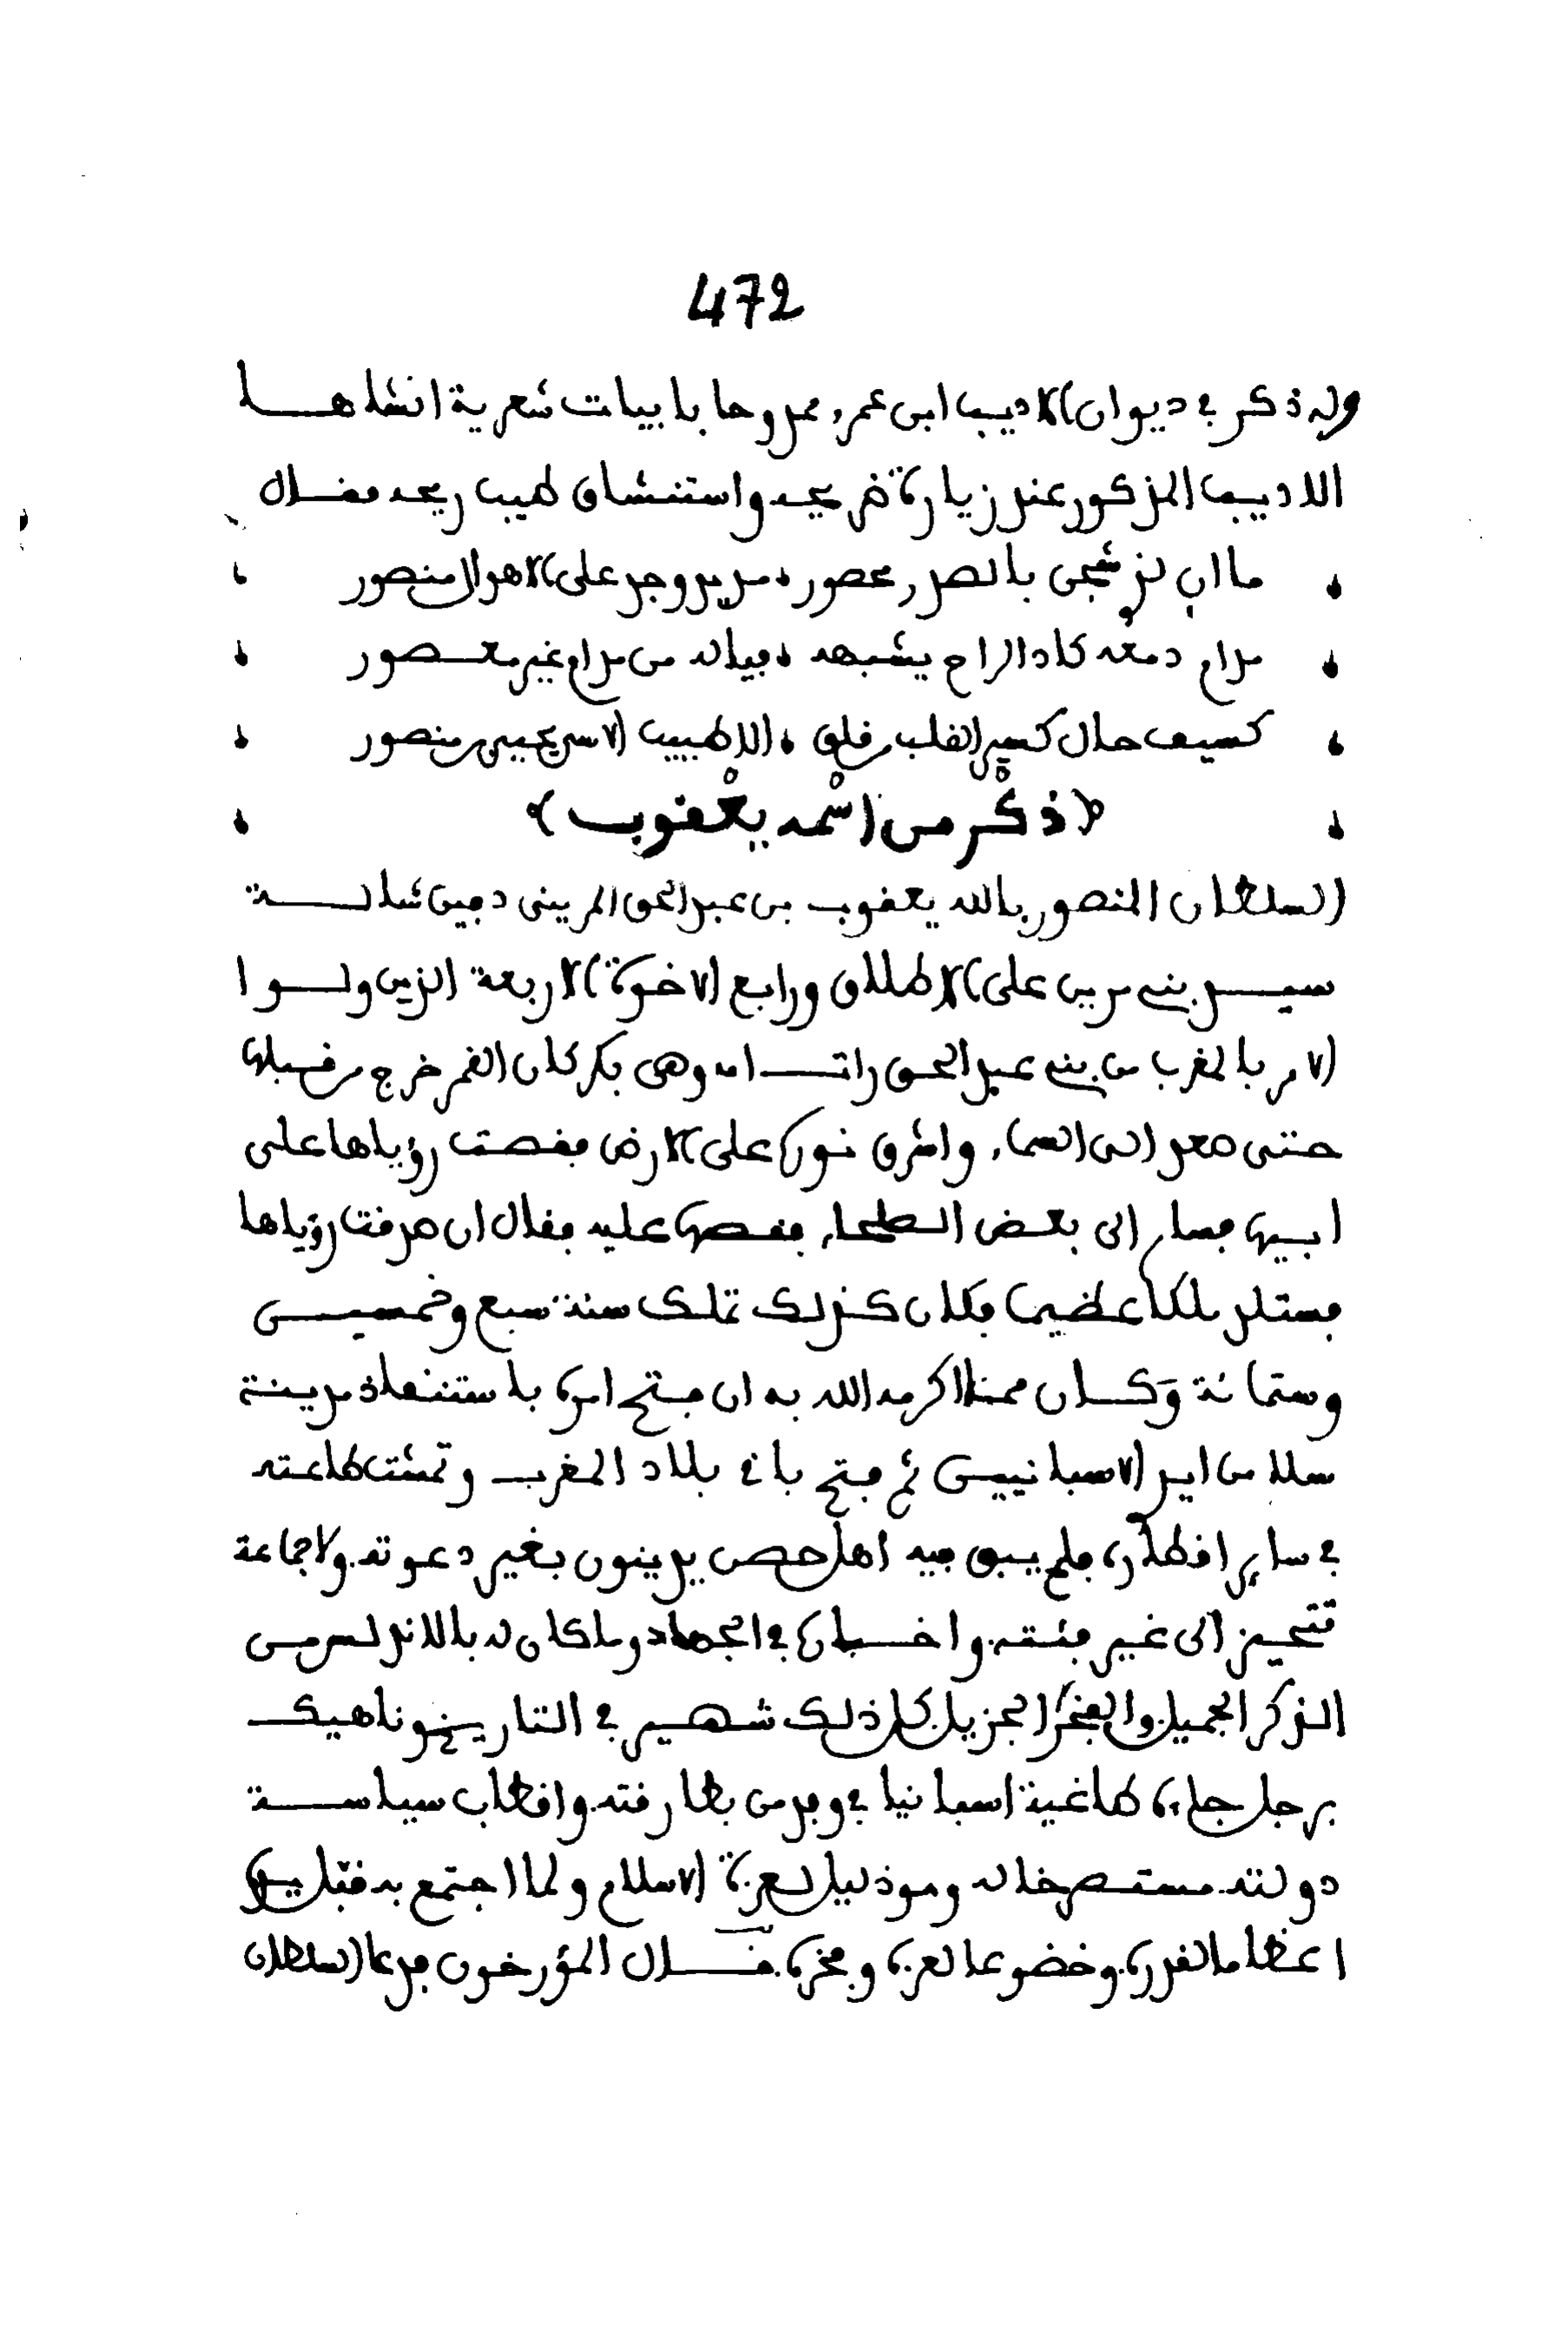 472
وله ذكر في ديوان الاديب ابى عمرو ممدوحا بابيات شعرية انشاها
الاديب المذكور عند زيارة ضريحه واستنشاق طيب ريحه فقال
ما ان لذى شجى بالصد محصور من يد وجد على الاهوال منصور
مدام دمعه كاد الراح يشبهه فياله من مدام غير معصور
كيف حال كسير القلب الا طبيب الا سر يحيى منصور
(ذكْر من اسْمه يعْقوب)
السلطان المنصور بالله يعقوب بن عبد الحق المرينى دفين شالة
سيد بنى مرين على الاطلاق ورابع الاخوة الاربعة الذين ولوا
الامر بالمغرب من بنى عبد الحق رات امه وهى بكر كان القمر خرج من قبلها
حتى صعد الى السماء واشرق نوره على الارض فقصت رؤياها على
ابيها فسار الى بعض الصلحاء فقصها عليه فقال ان صدقت رؤياها
فستلد ملكا عظيما فكان كذلك تملك سنة سبع وخمسين
وستمائة وكان مما اكرمه الله به ان فتح امره باستنقاذ مدينة
سلا من ايد الاسبانيين ثم فتح باقى بلاد المغرب وتمشت طاعته
في ساير اقطاره فلم يبق فيه اهل حصن يدينون بغير دعوته ولا جماعة
تتحيز الى غير فئته واخباره في الجهاد وما كان له بالاندلس من
الذكر الجميل والفخر الجزيل كل ذلك شهير في التاريخ وناهيك
برجل جاءه طاغية اسبانيا في وفد من بطارقته واقطاب سياسة
دولته مستصرخا له وموذ ليل لعزة الاسلام ولما اجتمع به قبل يده
اعظاما لقدره وخضوعا لعزه وفخره قال المؤرخون فدعا السلطان